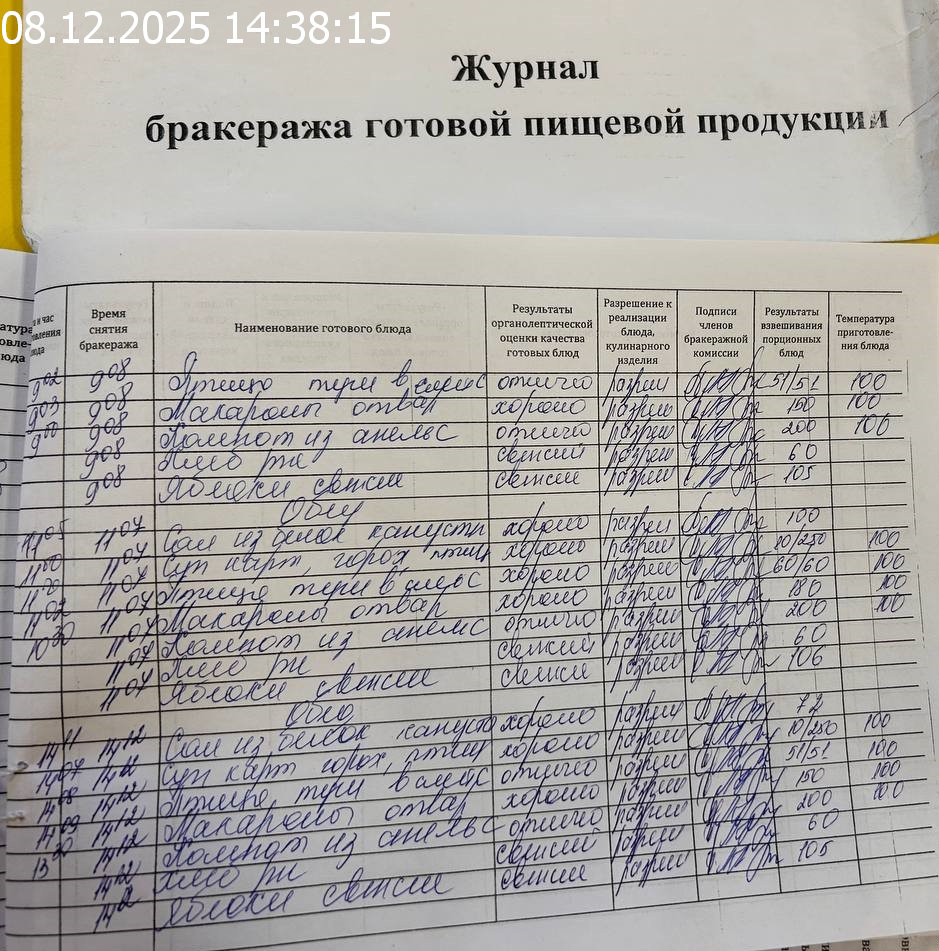 08.12.2025 14:38:15
Журнал
бракеража готовой пищевой продукции
Время снятия бракеража
Наименование готового блюда
Результаты органолептической оценки качества готовых блюд
Разрешение к реализации блюда, кулинарного изделия
Подписи членов бракеражной комиссии
Результаты взвешивания порционных блюд
Температура приготовле-ния блюда
9 02 9 08 туш в отлично разреш 51/51 100
9 03 9 08 Макароны отвар хорошо разреш 150 100
9 00 9 08 Компот из апельс отлично разреш 200 100
9 08 Хлеб рж свежий разреш 60
9 08 Яблоки свежие свежие разреш 105
11 05 11 07 Сал из белок капусты хорошо разреш 100
11 00 11 07 Суп карт, горох, птиц хорошо разреш 10/250 100
11 07 туш в хорошо разреш 60/60 100
11 02 11 07 Макароны отвар хорошо разреш 180 100
10 30 11 07 Компот из апельс отлично разреш 200 100
11 07 Хлеб рж свежий разреш 60
11 07 Яблоки свежие свежие разреш 106
14 11 14 12 Сал из белок капусты хорошо разреш 72
14 07 14 12 Суп карт горох, птиц хорошо разреш 10/250 100
14 08 14 12 туш в отлично разреш 51/51 100
14 09 14 12 Макароны отвар хорошо разреш 150 100
13 30 14 12 Компот из апельс отлично разреш 200
14 12 Хлеб рж свежий разреш 60
14 12 Яблоки свежие свежие разреш 105